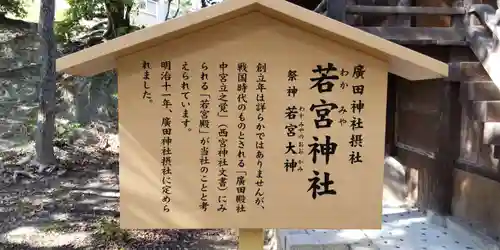 廣田神社摂社
わか みや
若宮神社
祭神 若宮大神
わかみやのおおかみ
創立年は詳らかではありませんが、
戦国時代のものとされる「廣田殿社
中宮立之覚」(西宮神社文書)にみ
られる「若宮殿」が当社のことと考
えられています。
明治十一年、廣田神社摂社に定めら
れました。